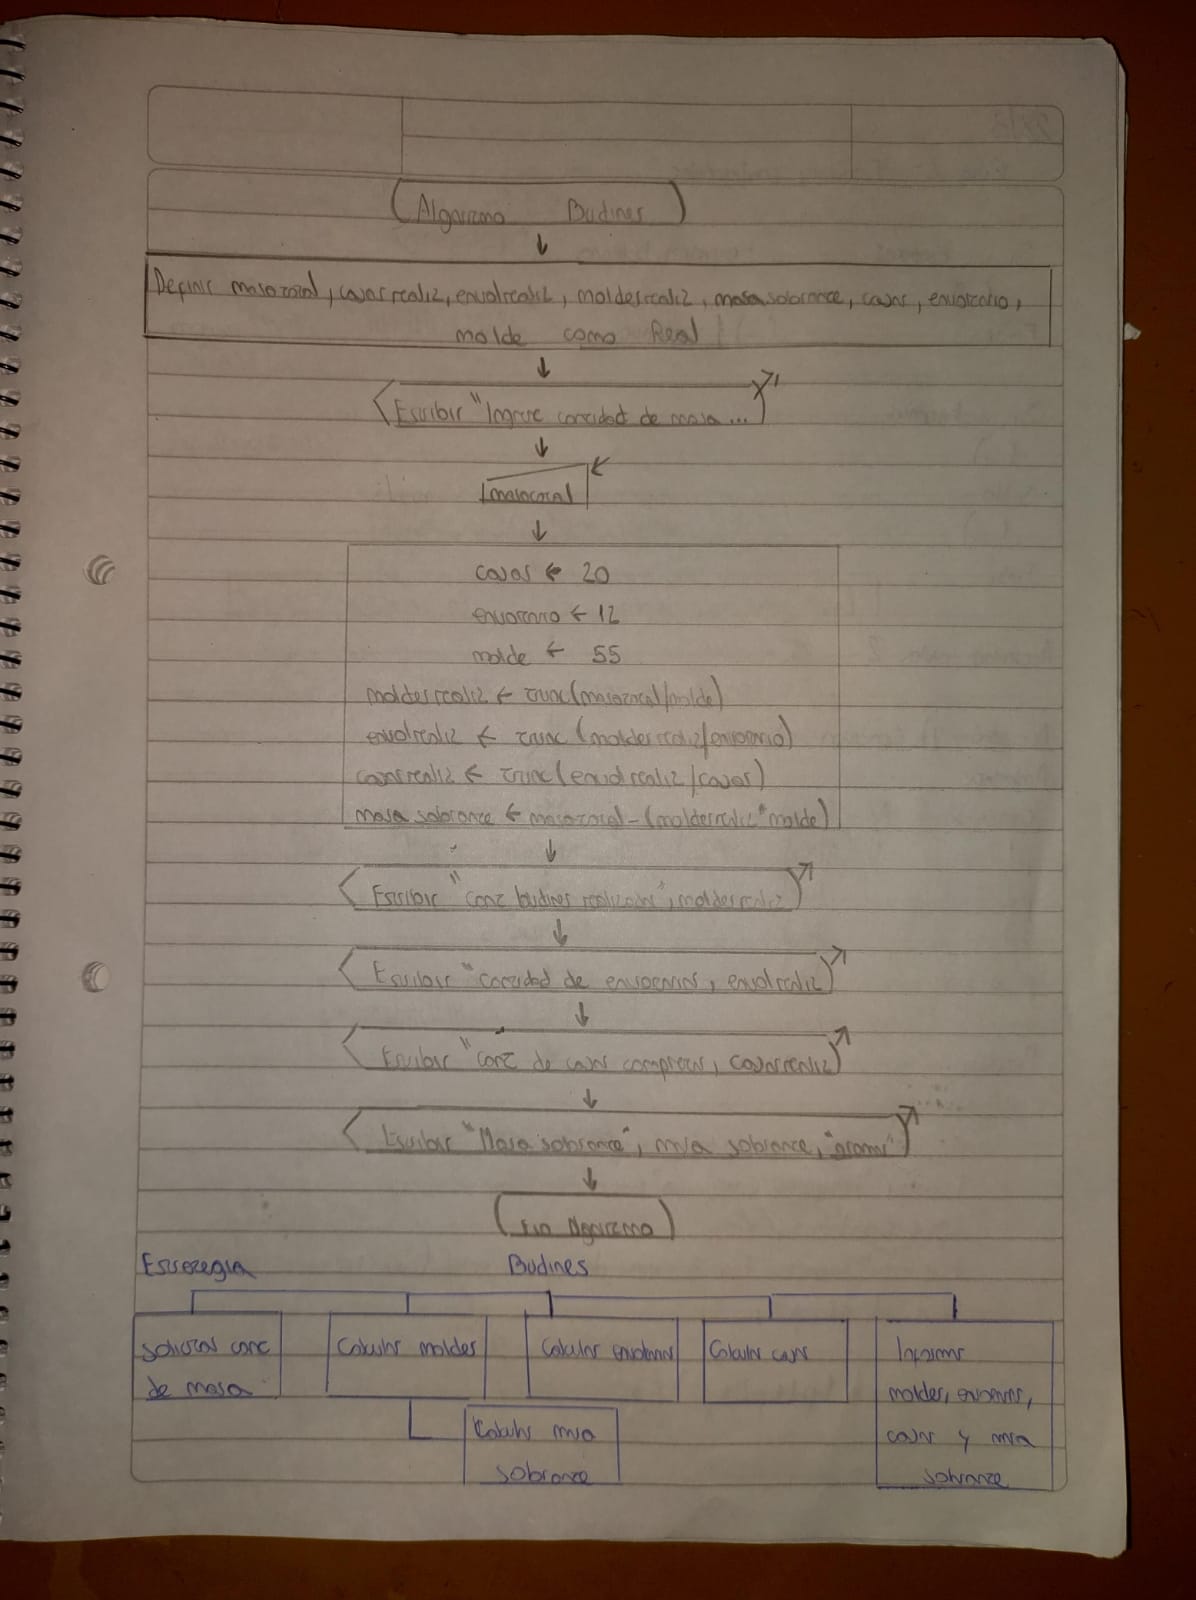 Algoritmo Budines
Definir masatotal, cajasrealiz, envolrealiz, moldesrealiz, masasobrante, cajas, envoltorio,
molde como Real
Escribir "Ingrese cantidad de masa...
masatotal
cajas ← 20
envoltorio ← 12
molde ← 55
moldesrealiz ← trunc(masatotal/molde)
envolrealiz ← trunc (moldesrealiz/envoltorio)
cajasrealiz ← trunc(envolrealiz/cajas)
masa sobrante ← masatotal-(moldesrealiz*molde)
Escribir "Cant budines realizados", moldesrealiz
Escribir "Cantidad de envoltorios, envolrealiz
Escribir "cant de cajas completas, cajasrealiz
Escribir "Masa sobrante", masa sobrante, "gramos"
Fin Algoritmo
Estrategia Budines
Solicitar cant Calcular moldes Calcular envoltorios Calcular cajas Informar
de masa moldes, envoltorios,
Calcular masa cajas y masa
sobrante sobrante